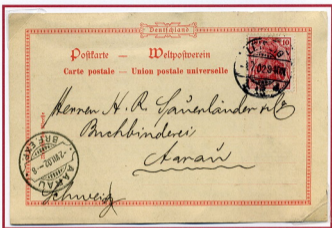 Deutschland
Postkarte — Weltpostverein
Carte postale — Union postale universelle
10
Herren H. R. Sauerländer & Co
Buchbinderei
Aarau
Schweiz
AARAU
BRF. EXP.